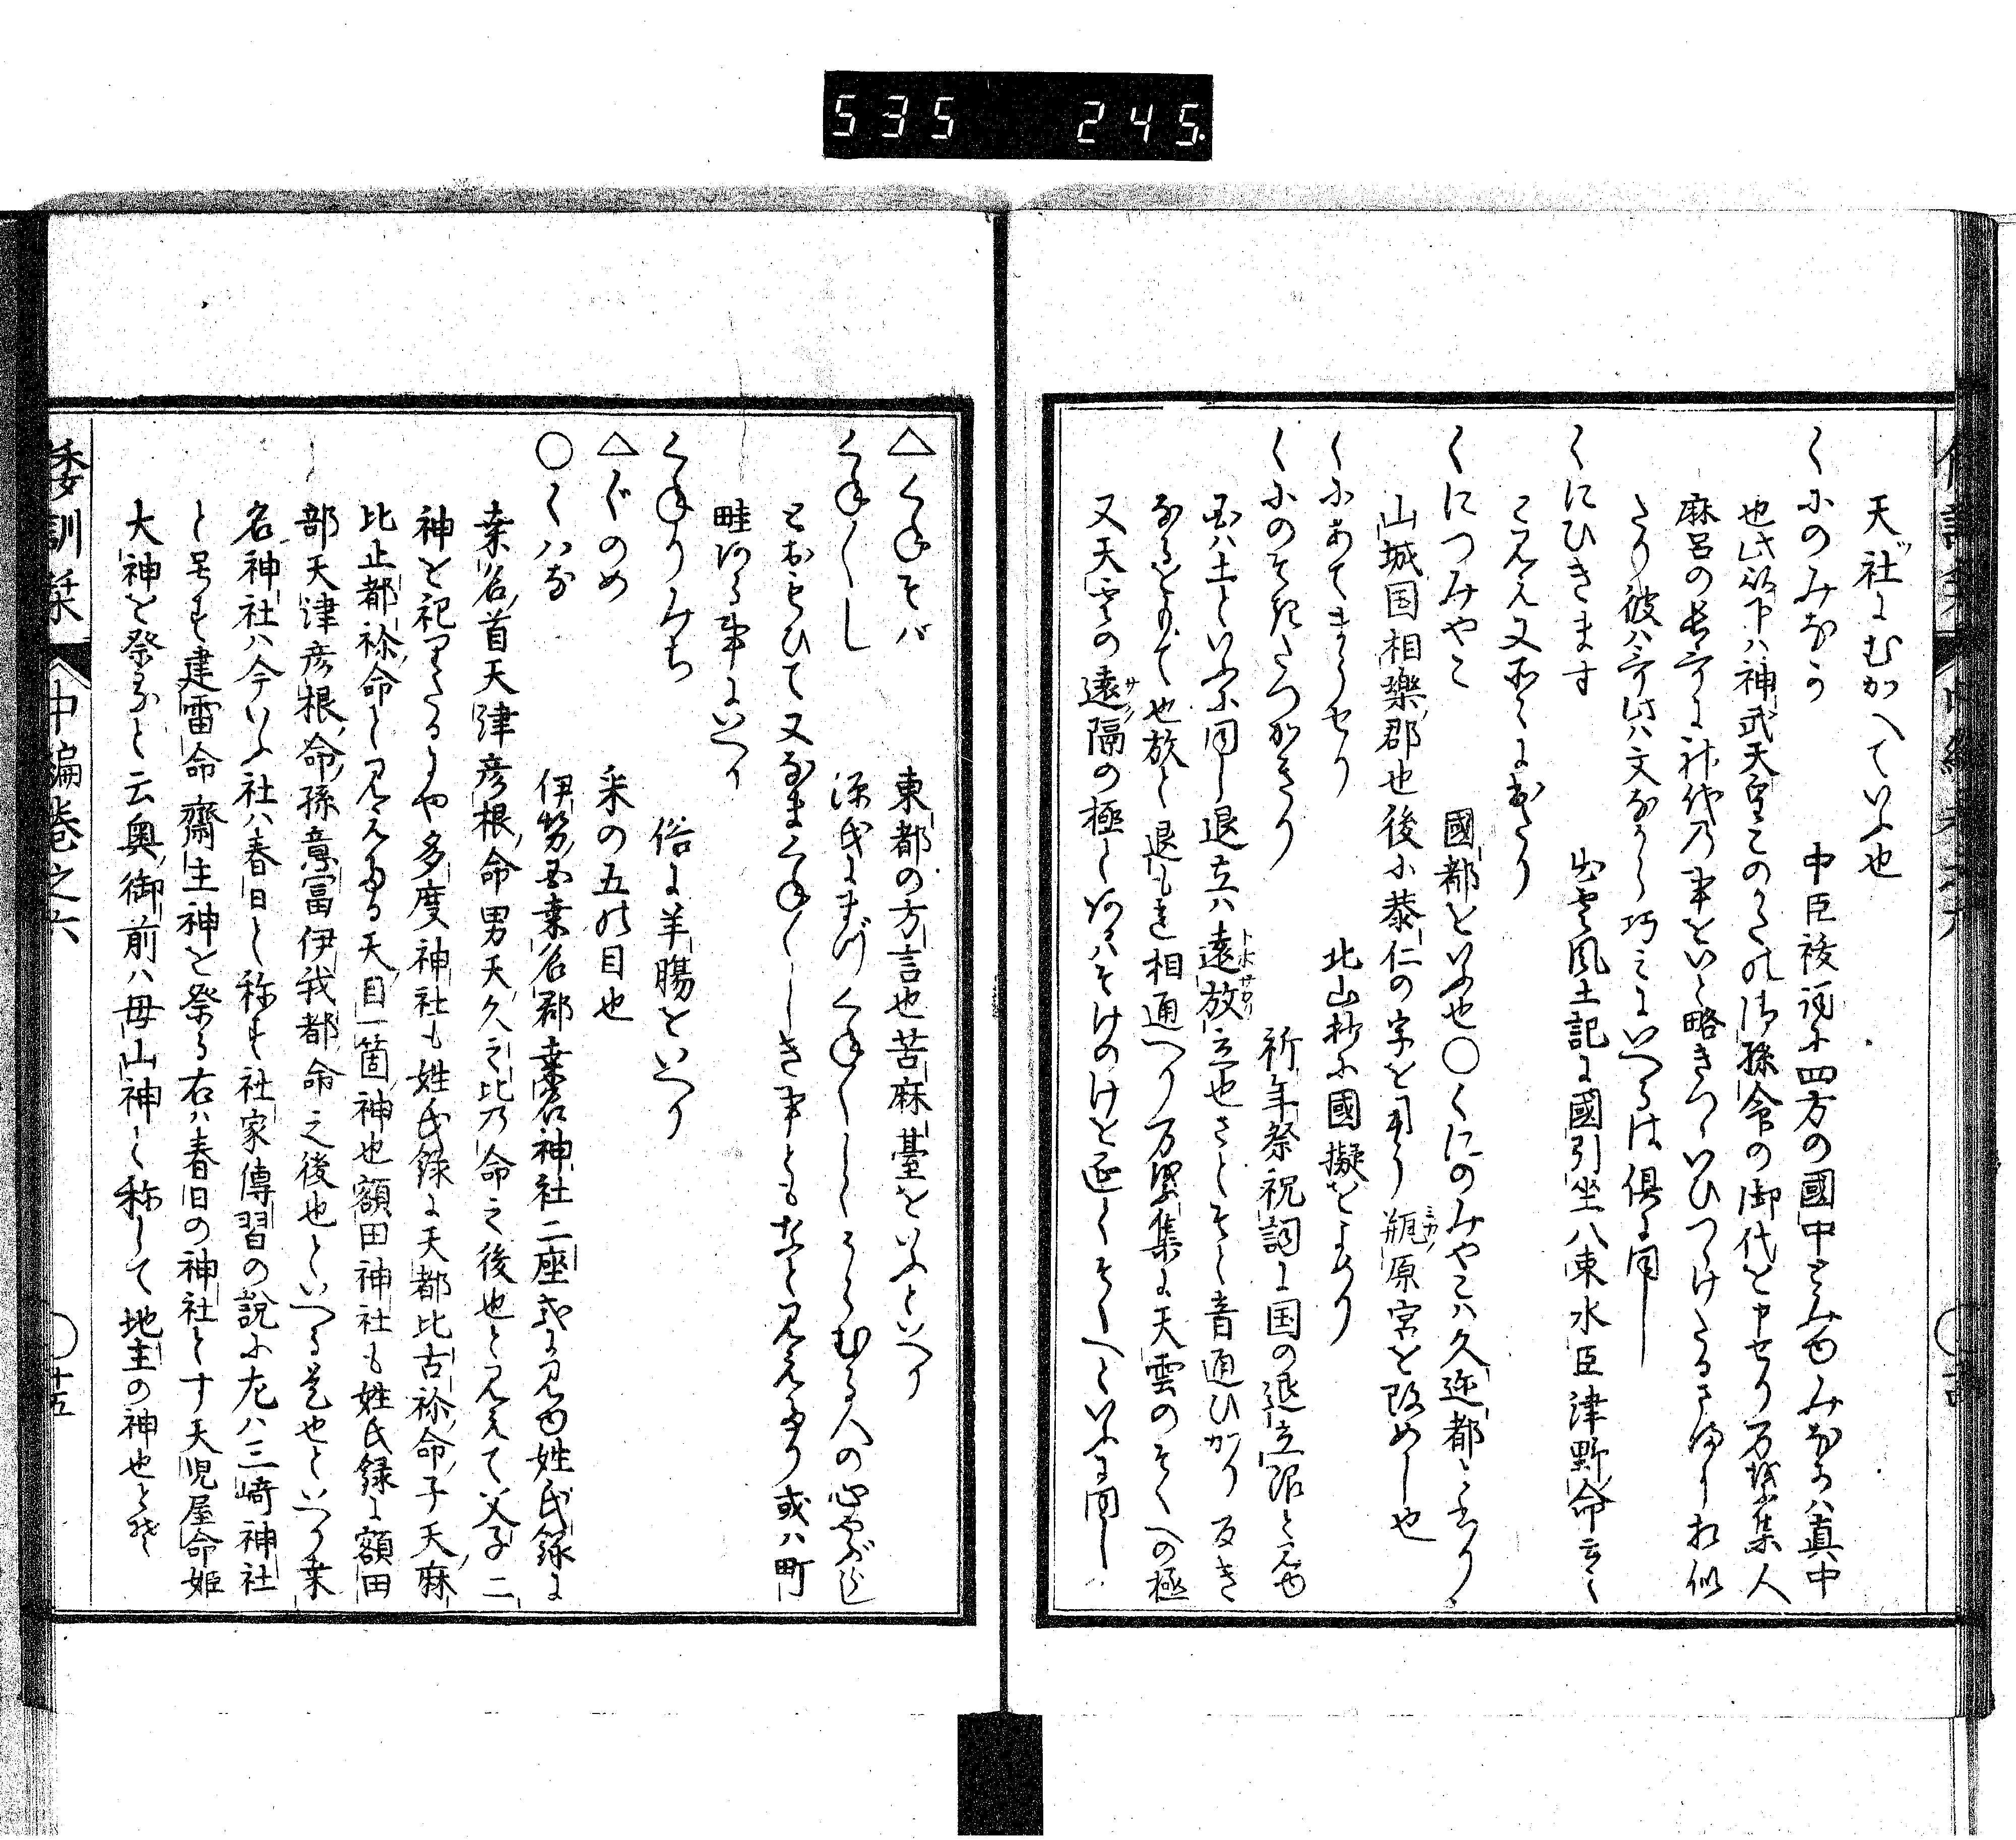 535 245.
天社にむかへていふ也
くにのみなか 中臣祓詞に四方の國中とみゆみなかハ真中
也此以下ハ神武天皇このかたの御孫命の御代を申せり万葉集人
麻呂の長哥に神代乃事をいと略きついひつゝけたるさまに相似
たり彼ハ哥此ハ文なから巧ミにいへるは倶に同し
くにひきます 出雲風土記に國引坐八束水臣津野命云々
とみえ又所々に出たり
くにつみやこ 國都をいふ也○くにのみやこハ久迩都と云り
山城国相樂郡也後に恭仁の字を用う瓶原宮を改めし也
くにあてまうせり 北山抄に國擬をよめり
くにのそきたつかきり 祈年祭祝詞に国の退立限とみゆ
国ハ土といふに同し退立ハ遠放立也さとそと音通ひかり反き
なるをもて也放と退も其相通へり万葉集に天雲のそくへの極
又天雲の遠隔の極とあるはそけのけを延てそくへといふに同し
△くねそば 東都の方言也苦麻臺をいふといへり
くねくし 源氏にまづくねくしくうらむる人の心やぶらじ
とおもひて又なまくねくしき事ともなと見えたり或ハ町
畦ある事にいへり
くねりみち 俗に羊腸をいへり
△ぐのめ 采の五の目也
○くハな 伊勢国桒名郡桒名神社二座式に見ゆ姓氏録に
桒名首天津彦根命男天久之比乃命之後也と見えて父子二
神を祀りたるにや多度神社も姓氏録に天都比古祢命子天麻
比止都祢命と見えたる天目一箇神也額田神社も姓氏録に額田
部天津彦根命孫意富伊我都命之後也といへる是也といへり桒
名神社ハ今いふ社ハ春日と称す社家傳習の説に左ハ三﨑神社
と号す建雷命齋主神を祭る右ハ春日の神社とす天児屋命姫
大神を祭ると云奥御前ハ母山神と称して地主の神也とそ
倭訓栞 中編巻之六 ○十五